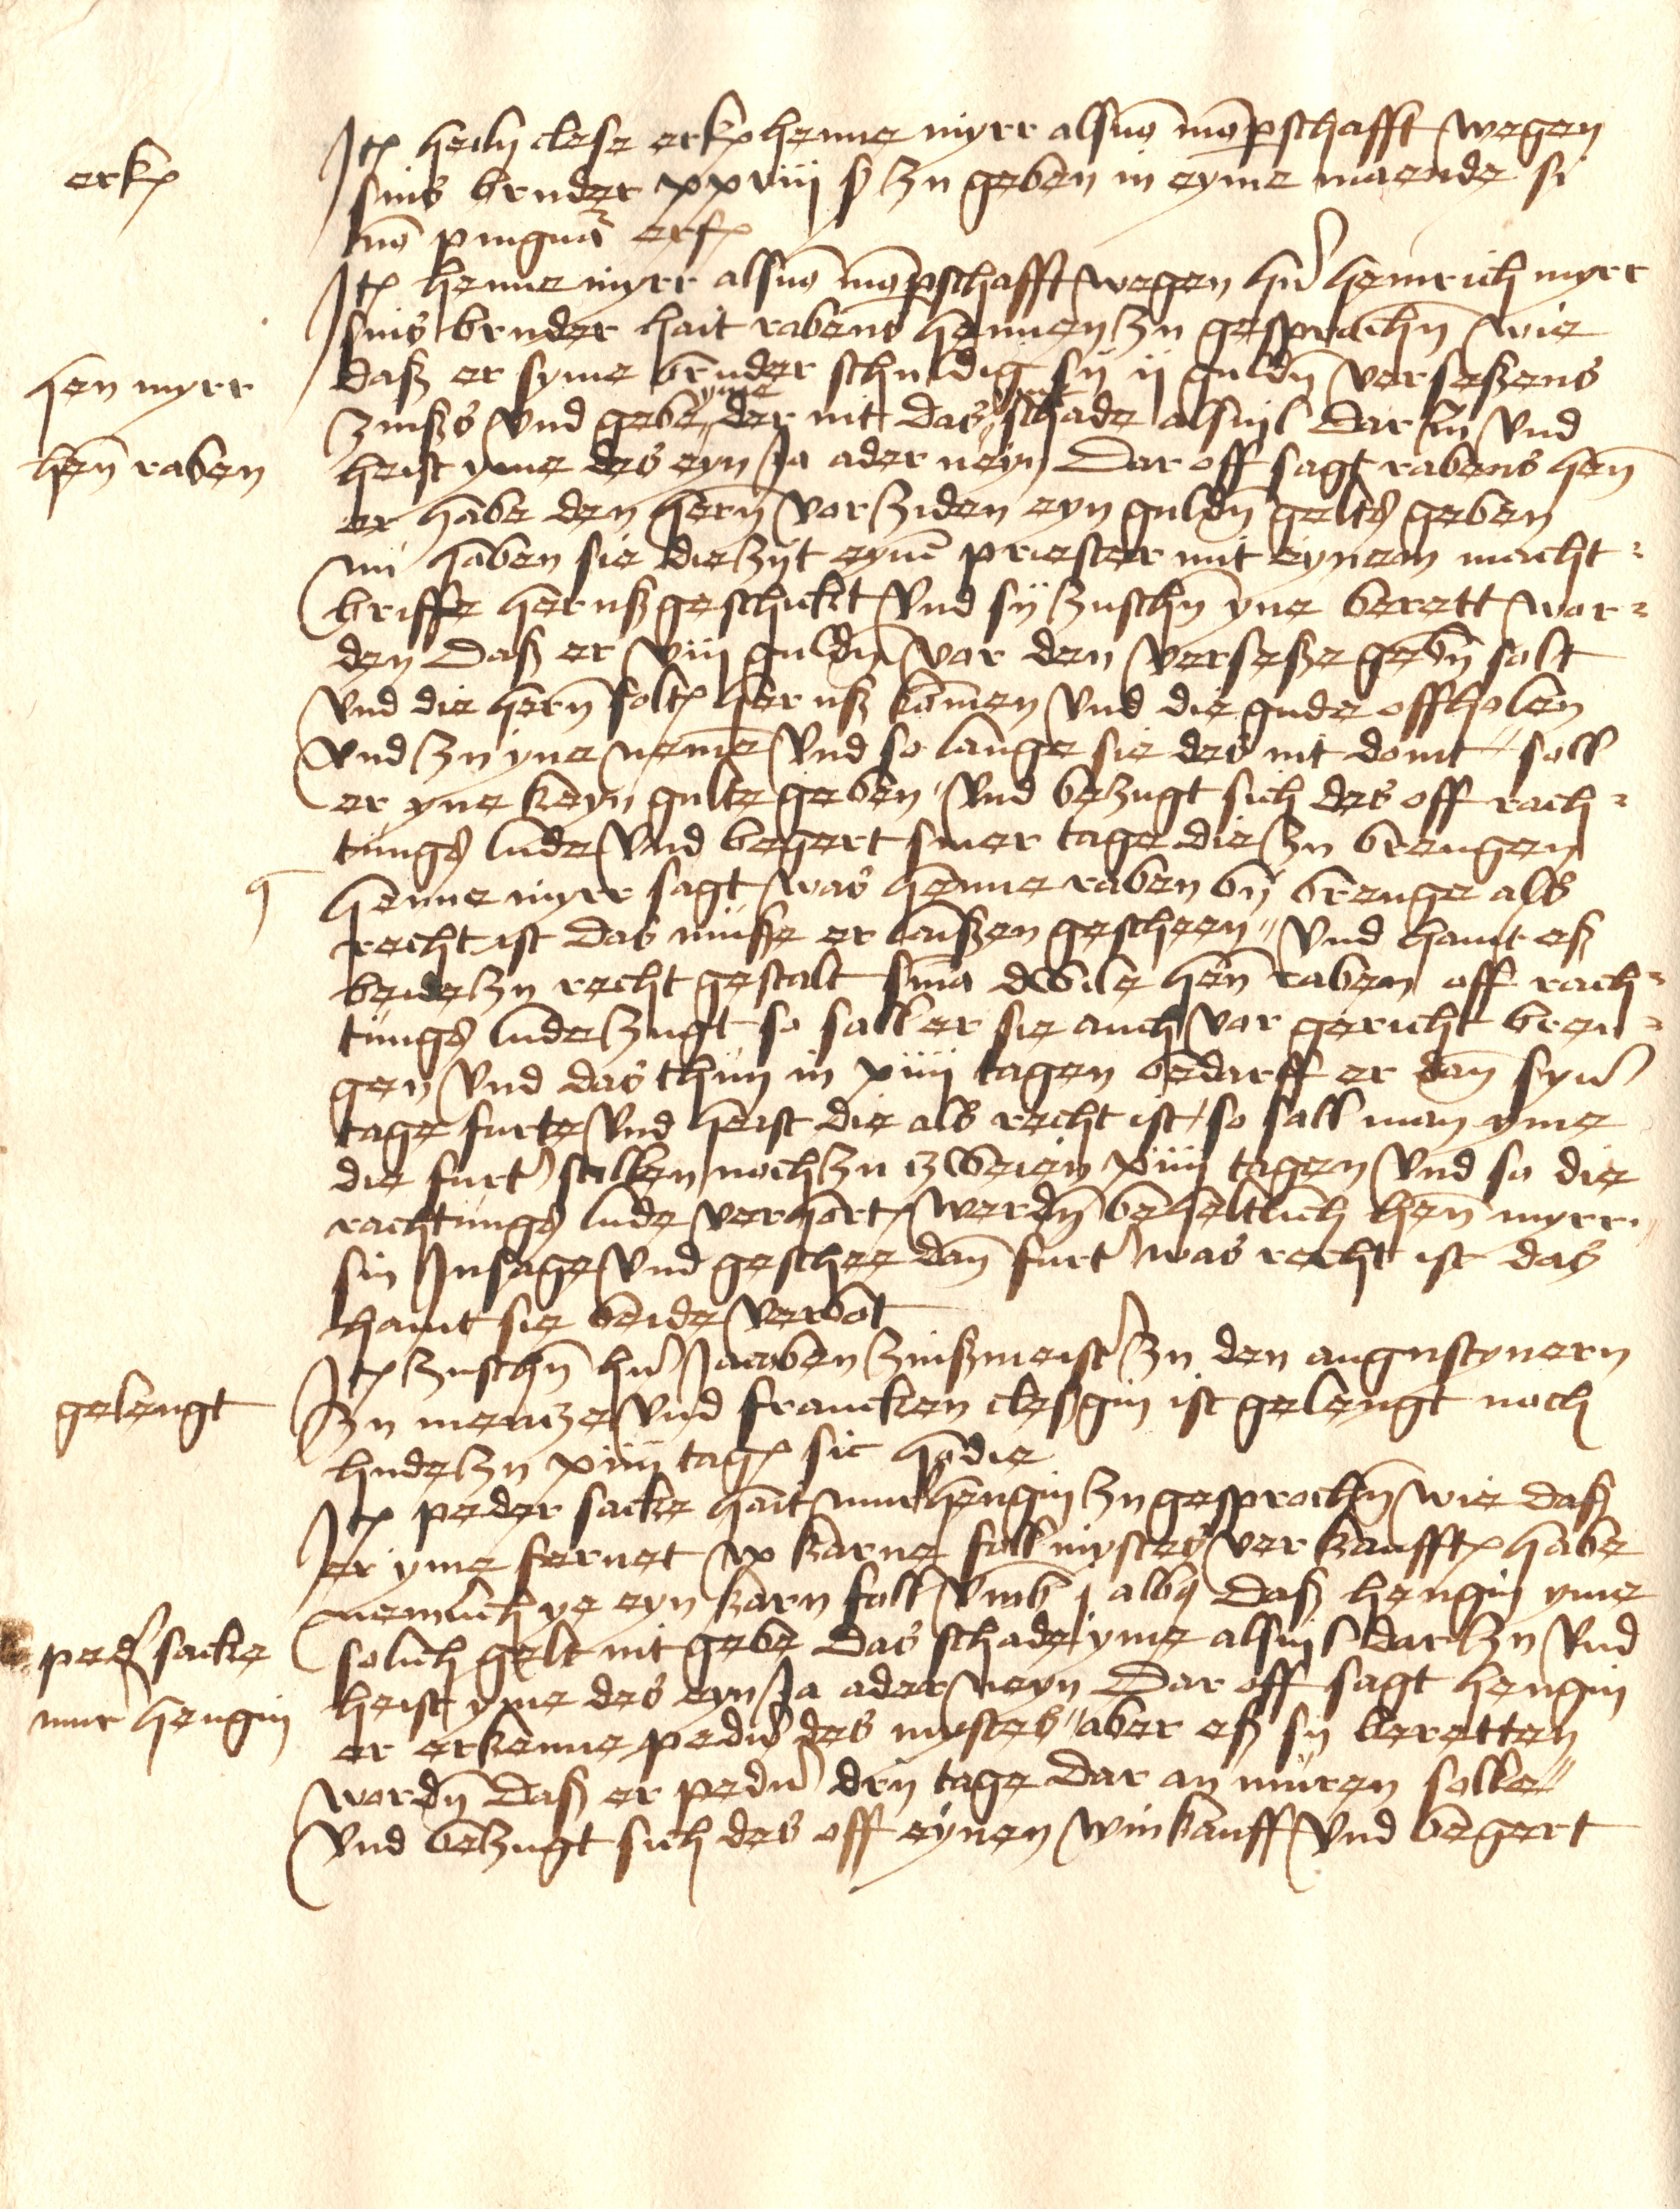 erk
Jt heiln clese erk henne myrr als von mo(m)pschafft wegen
sins bruder xxviij ß zu geben in eyme maende si
no(n) p ingua(m) erf
Jt henne myrr als von mo(m)pschafft wegen hr heinrich myrr
sins bruder hait rabens hennen zu gesprochn wie
hen myrr
daß er syme bruder schuldig sij ij guldn verseßens
zinßs vnd gebe yme der nit das schade alsuil dar zu vnd
hen raben
heist yme des eyn Ja ader neyn Dar off sagt rabens hen
er habe den hern vor ziden eyn guldn gelts geben
nu haben sie die zijt eyne priester mit eynem macht=
briffe her uß geschickt vnd sij zuschn yne berett wor=
den Daß er viij guldn vor den verseße gebn solt
vnd die hern solt her uß kommen vnd die gude offholen
vnd zu yne neme vnd so lange sie des nit doint soll
er yne keyn gulte geben vnd bezugt sich des off rach=
tungs lude vnd begert siner tage die zu brengen
henne myrr sagt was henne raben by brenge als
recht ist das muße er laißen gescheen vnd haint eß
beide zu recht gestalt sma dwile hen raben off rach=
tungs lude zugt so sall er sie auch vor gericht bren=
gen vnd das thun in xiiij tagen bedarff er dan syner
tage furte vnd heist die als recht ist so sall man yme
die furt stellen noch zu zweien xiiij tagen vnd so die
rachtungs lude verhort werdn beheltlich hen myrr
sin Jnsage vnd geschee dan furt was recht ist das
haint sie beide verbot
Jt zuschn hr Jacoben zinßmeister zu den augustynern
gelengt
zu mencze vnd francken cleßgin ist gelengt noch
hude zu xiiij tag sic hodie
Jt peder sacke hait mur hengin zu gesprochn wie daß
er yme fernet xv karne foll mystes verkaufft habe
nemlich ye eyn karn foll vmb j alb(us) Daß hengin yme
peder sacke
solich gelt nit gebe Das schade yme alsuil dar zu vnd
mur hengin
heist yme des eyn Ja ader neyn Dar off sagt hengin
er erkenne pedern des mystes aber eß sy beretten
wordn Daß er pedern dry tage dar an muren solle
vnd bezugt sich des off eynen winkauff vnd begert